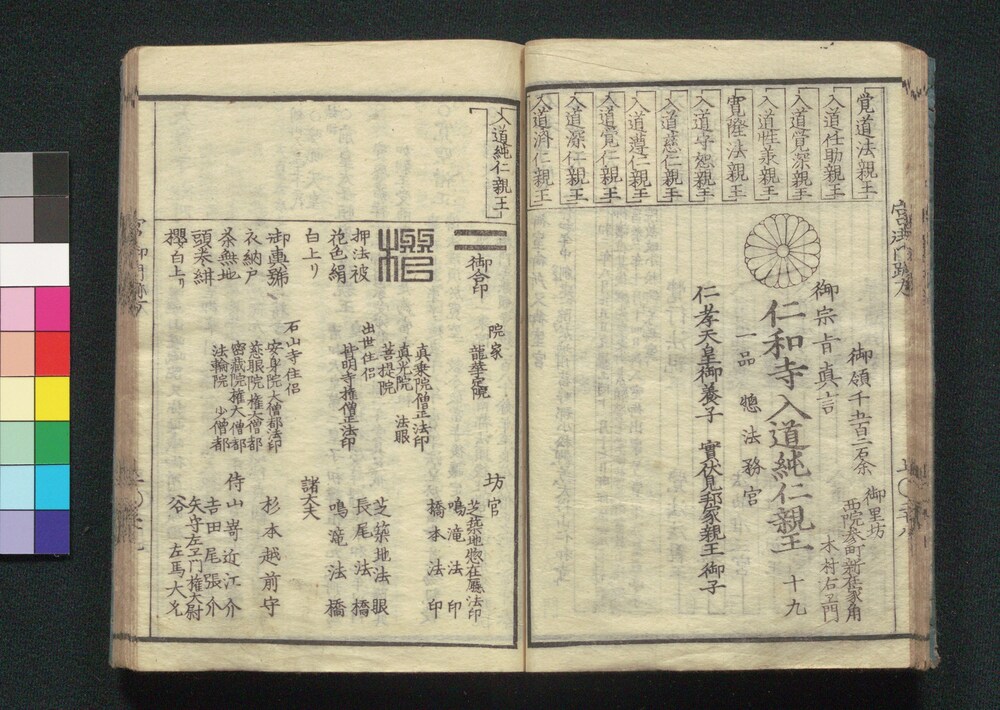 覚道法親王
入道任助親王
入道覚深親王
入道性承親王
寛隆法親王
入道守恕親王
入道慈仁親王
入道遵仁親王
入道覚仁親王
入道深仁親王
入道済仁親王
御領千五百二石余
御里坊
西院参町新在家角
木村右ヱ門
御宗旨真言
仁和寺入道純仁親王
十九
一品 惣法務宮
仁孝天皇御養子 實伏見邦家親王御子
入道純仁親王
御合印
押法被
花色絹
白上リ
御輿舁
衣納戸
茶無地
白上リ
院家
龍華院
真乗院僧正法印
真光院 法眼
菩提院
出世住侶
皆明寺権僧正法印
石山寺住侶
安身院大僧都法印
慈眼院権大僧都
密蔵院権大僧都
法輪院 少僧都
坊官
芝築地惣在廳法印
鳴滝法印
橋本法印
芝築地法眼
長尾法橋
鳴滝法橋
諸大夫
杉本越前守
侍
山嵜近江介
吉田尾張介
矢守左ヱ門権大尉
谷 左馬大允